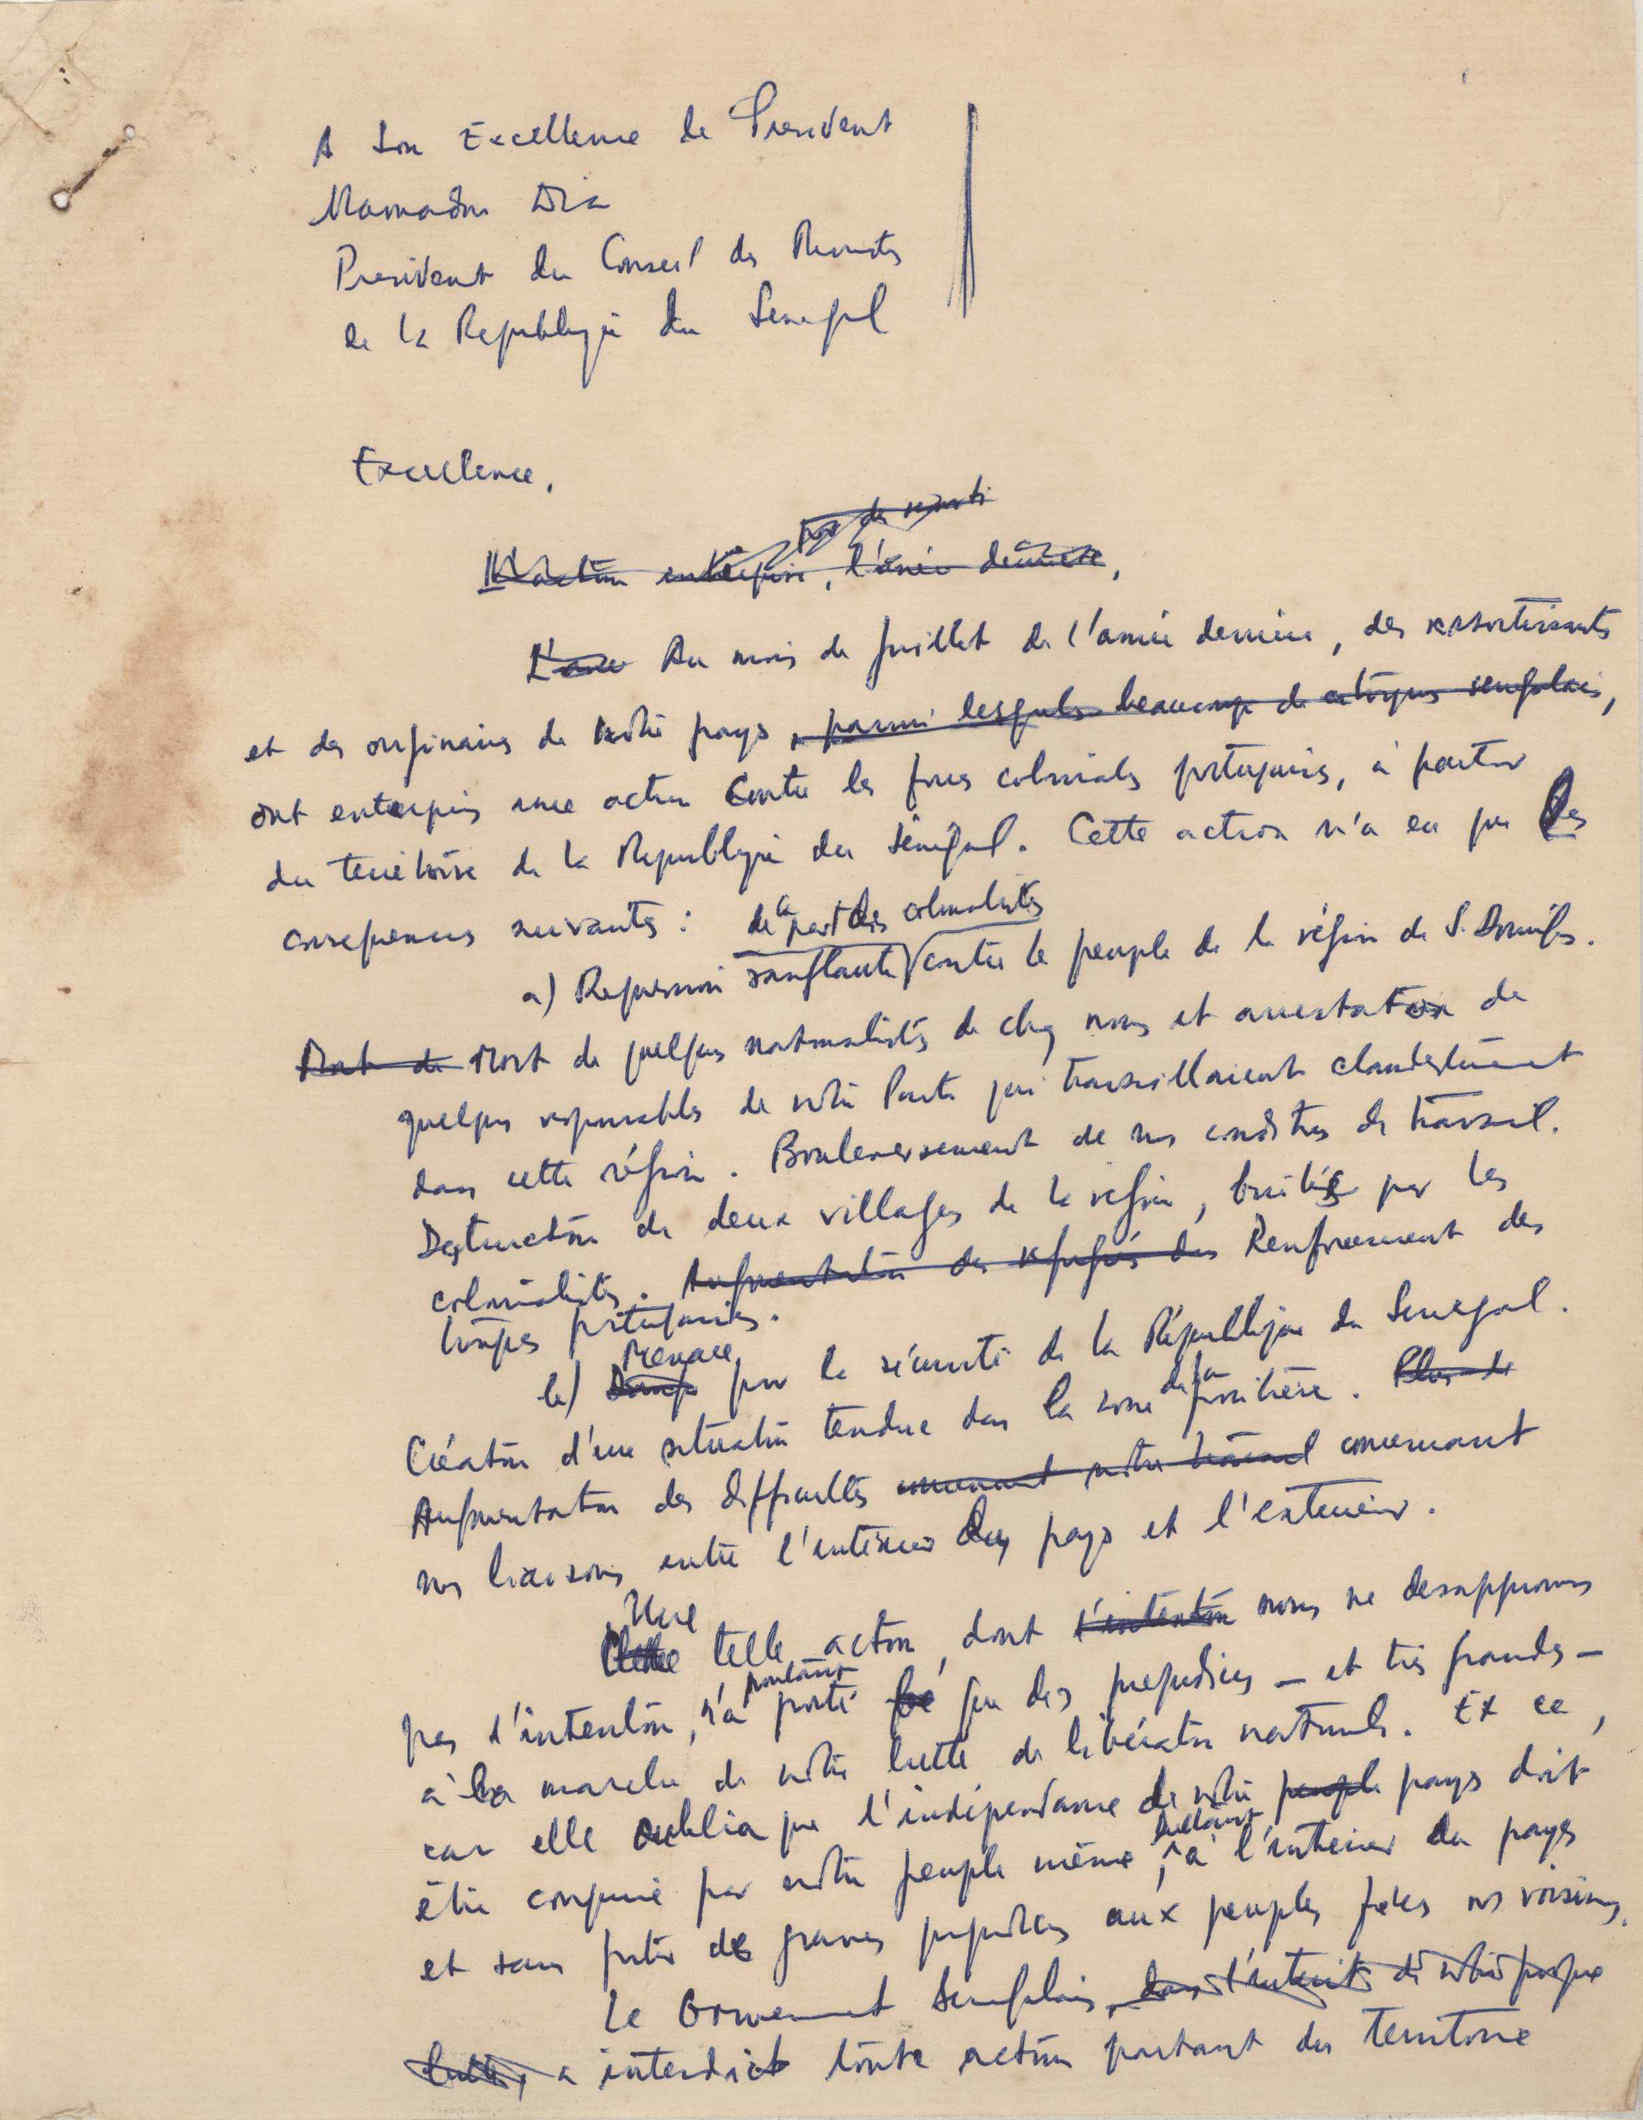 A Son Excellence le President
Mamadou Dia
President du Conseil des Ministres
de la Republique du Senegal
Excellence,
par des
L'action entreprise, l'année dernière,
Au mois de Juillet de l'année dernière, des ressortissants
et des originaires de notre pays, parmi lesquels beaucoup de citoyens senegalais,
ont entrepris une action contre les forces coloniales portugaises, à partir
du territoire de la Republique du Sénégal. Cette action n'a eu que les
consequences suivantes :
de la part des colonialistes
a) Repression sanglante contre le peuple de la région de S. Domingos.
Mort de Mort de quelques nationalistes de chez nous et arrestation de
quelques responsables de notre Parti qui travaillaient clandestinement
dans cette région. Bouleversement de nos conditions de travail.
Destruction de deux villages de la région, brulés par les
colonialistes. Augmentation des refugiés des Renforcement des
troupes portugaises.
Menace
b) Danger pour la sécurité de la République du Senegal.
de la
Création d'une situation tendue dans la zone frontière. Plus de
Augmentation des difficultés concernant notre travail concernant
nos liaisons entre l'intérieur du pays et l'exterieur.
Une
Cette telle action, dont l'intention nous ne desapprouvons
pourtant
pas l'intention, n'a porté que des prejudices - et très grands -
à la marche de notre lutte de libération nationale. Et ce,
car elle oublia que l'indépendance de notre peuple pays doit
luttant
être conquise par notre peuple même, à l'intérieur du pays
et sans porter de graves prejudices aux peuples frères nos voisins.
Le Gouvernement Senegalais, dans l'interêt de notre propre
lutte, a interdict toute action partant du Territoire